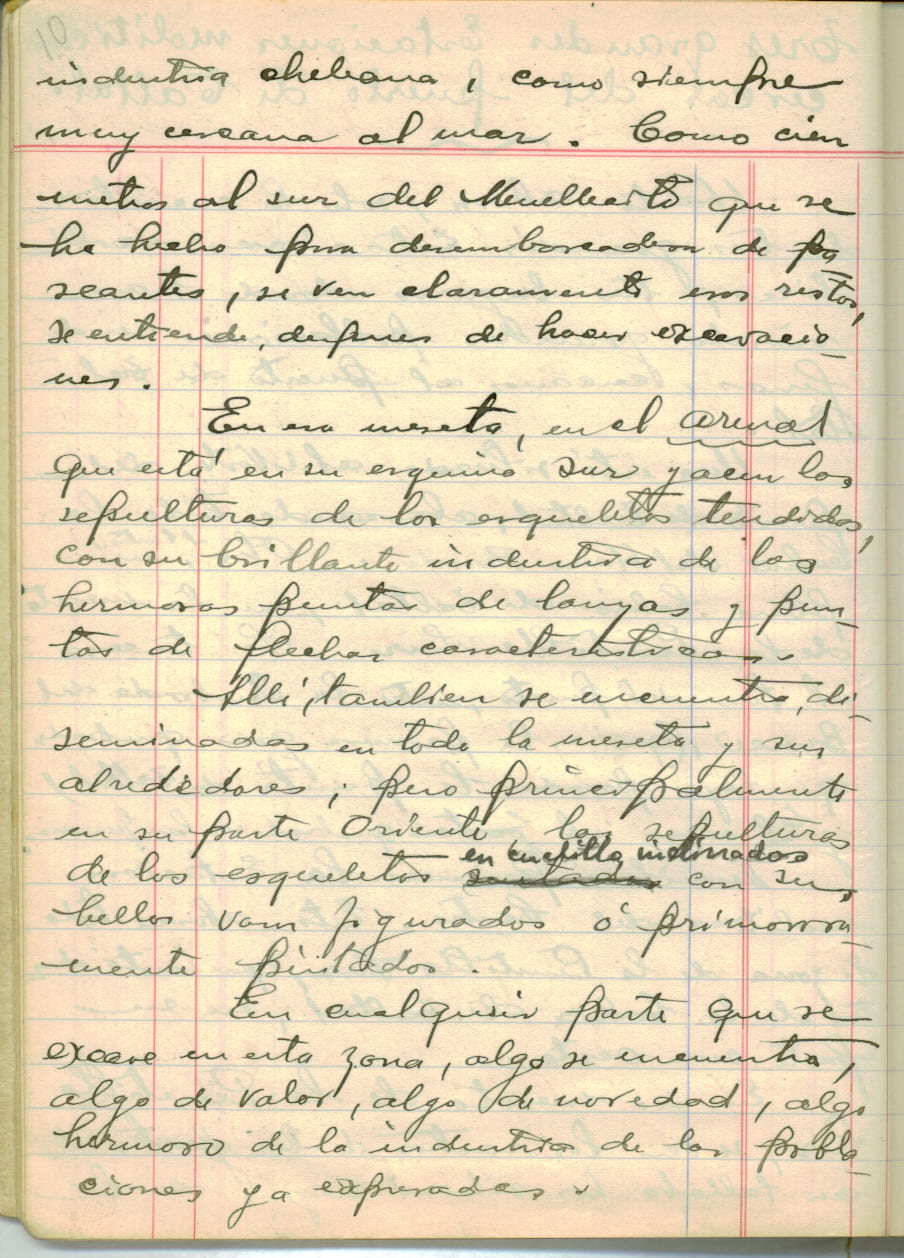 10
industria cheleana, como siempre
muy cercana al mar. Como cien
metros al sur del Muellecito que se
ha hecho para desembarcadero de pa
seantes, se ven claramente esos restos,
se entiende, despues de hacer excavacio-
nes.
En esa meseta, en el arenal
que está en su esquina sur yacen las
sepulturas de los esqueletos tendidos,
con su brillante industria de las
hermosas puntas de lanzas y pun-
tas de flechas caracteristicas.
Alli, tambien se encuentra, di-
seminadas en toda la meseta y sus
alrededores; pero principalmente
en su parte Oriente las sepulturas
en cuclilla inclinados
de los esqueletos sentados con sus
bellos vasos figurados ó primorosa-
mente pintados.
En cualquier parte que se
excave en esta zona, algo se encuentra,
algo de valor, algo de novedad, algo
hermoso de la industria de las pobla-
ciones ya expresadas.